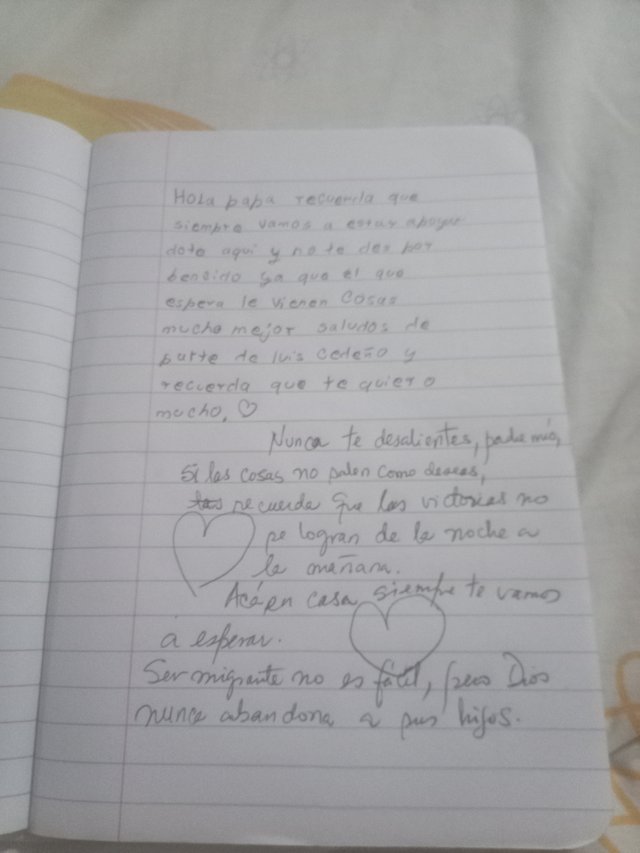 Hola papa recuerda que
siempre vamos a estar apoyan
dote aqui y no te des por
bensido ya que el que
espera le vienen cosas
mucho mejor saludos de
parte de luis cedeño y
recuerda que te quiero
mucho.
Nunca te desalientes, padre mío,
si las cosas no salen como deseas,
las recuerda que las victorias no
se logran de la noche a
la mañana.
Acá en casa siempre te vamos
a esperar.
Ser migrante no es fácil, pero Dios
nunca abandona a sus hijos.